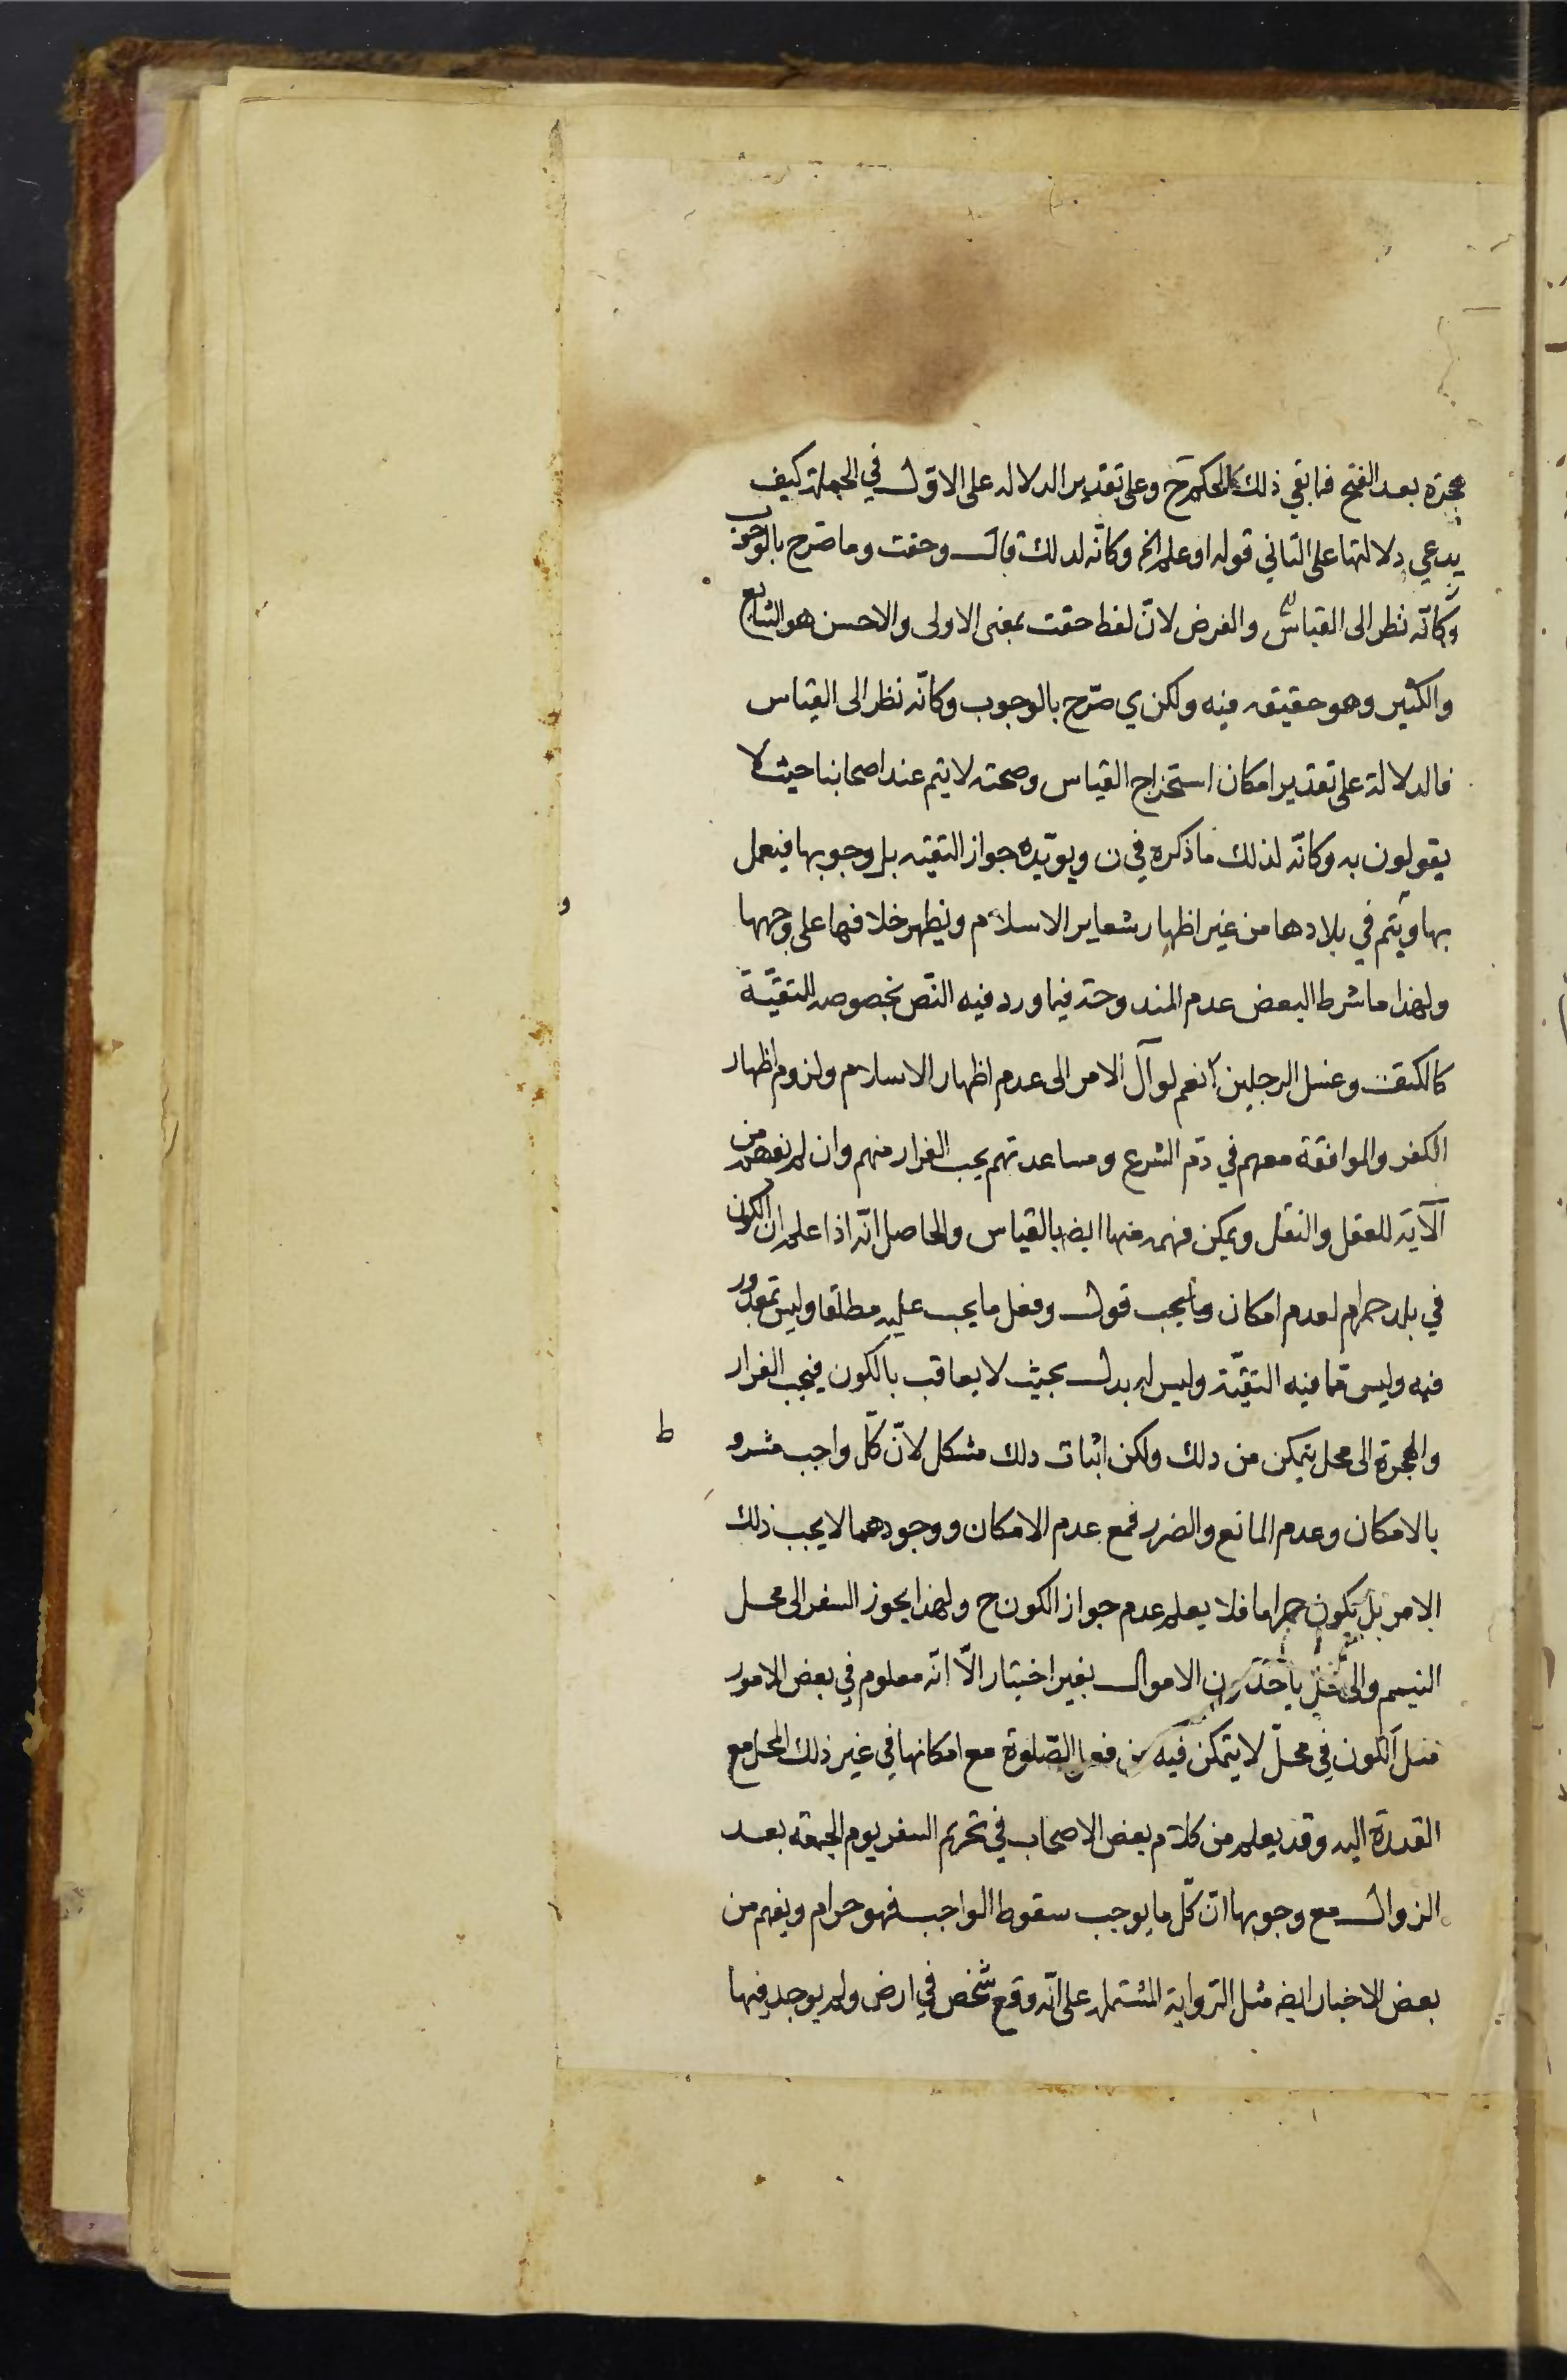 هجرة بعد الفتح فما بقي ذلك الحكم ح وعلى تقدير الدلاله على الاول في الجملة كيف
يدعي دلالتها على الثاني قوله او علم الخ وكانّه لذلك قال وحقت وما صرح بالوجوب
وكانّه نظر الى القياس والفرض لانّ لفظ حقت بمعنى الاولى والاحسن هو الشايع
والكثير وهو حقيقه فيه ولكن ي صرّح بالوجوب وكانّه نظر الى القياس
فالدلالة على تقدير امكان استخراج القياس وصحته لا يتم عند اصحابنا حيث لا
يقولون به وكانّه لذلك ما ذكره في ن ويؤيّده جواز التقيه بل وجوبها فيعمل
بها ويتم في بلادها من غير اظهار شعاير الاسلام ويظهر خلافها على وجهها
ولهذا ما شرط البعض عدم المندوحة فيما ورد فيه النّص بخصوصه للتقيّة
كالكتف وغسل الرجلين نعم لو آل الامر الى عدم اظهار الاسلام ولزوم اظهار
الكفر والموافقة معهم في ذم الشرع ومساعدتهم يجب الفرار منهم وان لم نفهم من
الآية للعقل والنقل ويمكن فهمه منها ايضا بالقياس والحاصل انّه اذا علم ان الكون
في بلد حرام لعدم امكان ما يجب قول وفعل ما يجب عليه مطلقا وليس بمقدور
فيه وليس مما فيه التقيّة وليس له بدل بحيث لا يعاقب بالكون فيجب الفرار
والهجرة الى محل يتمكن من ذلك ولكن اثبات ذلك مشكل لانّ كلّ واجب مشرو ط
بالامكان وعدم المانع والضرر فمع عدم الامكان ووجودهما لا يجب ذلك
الامر بل يكون حراما فلا يعلم عدم جواز الكون ح ولهذا يجوز السفر الى محل
التيمم والى محل ياخذون الاموال بغير اختيار الّا انّه معلوم في بعض الامور
مثل الكون في محلّ لا يتمكن فيه من فعل الصّلوة مع امكانها في غير ذلك المحل مع
القدرة اليه وقد يعلم من كلام بعض الاصحاب في تحريم السفر يوم الجمعة بعد
الزوال مع وجوبها انّ كلّ ما يوجب سقوط الواجب فهو حرام ويفهم من
بعض الاخبار ايضه مثل الرواية المشتمله على انّه وقع شخص في ارض ولم يوجد فيها